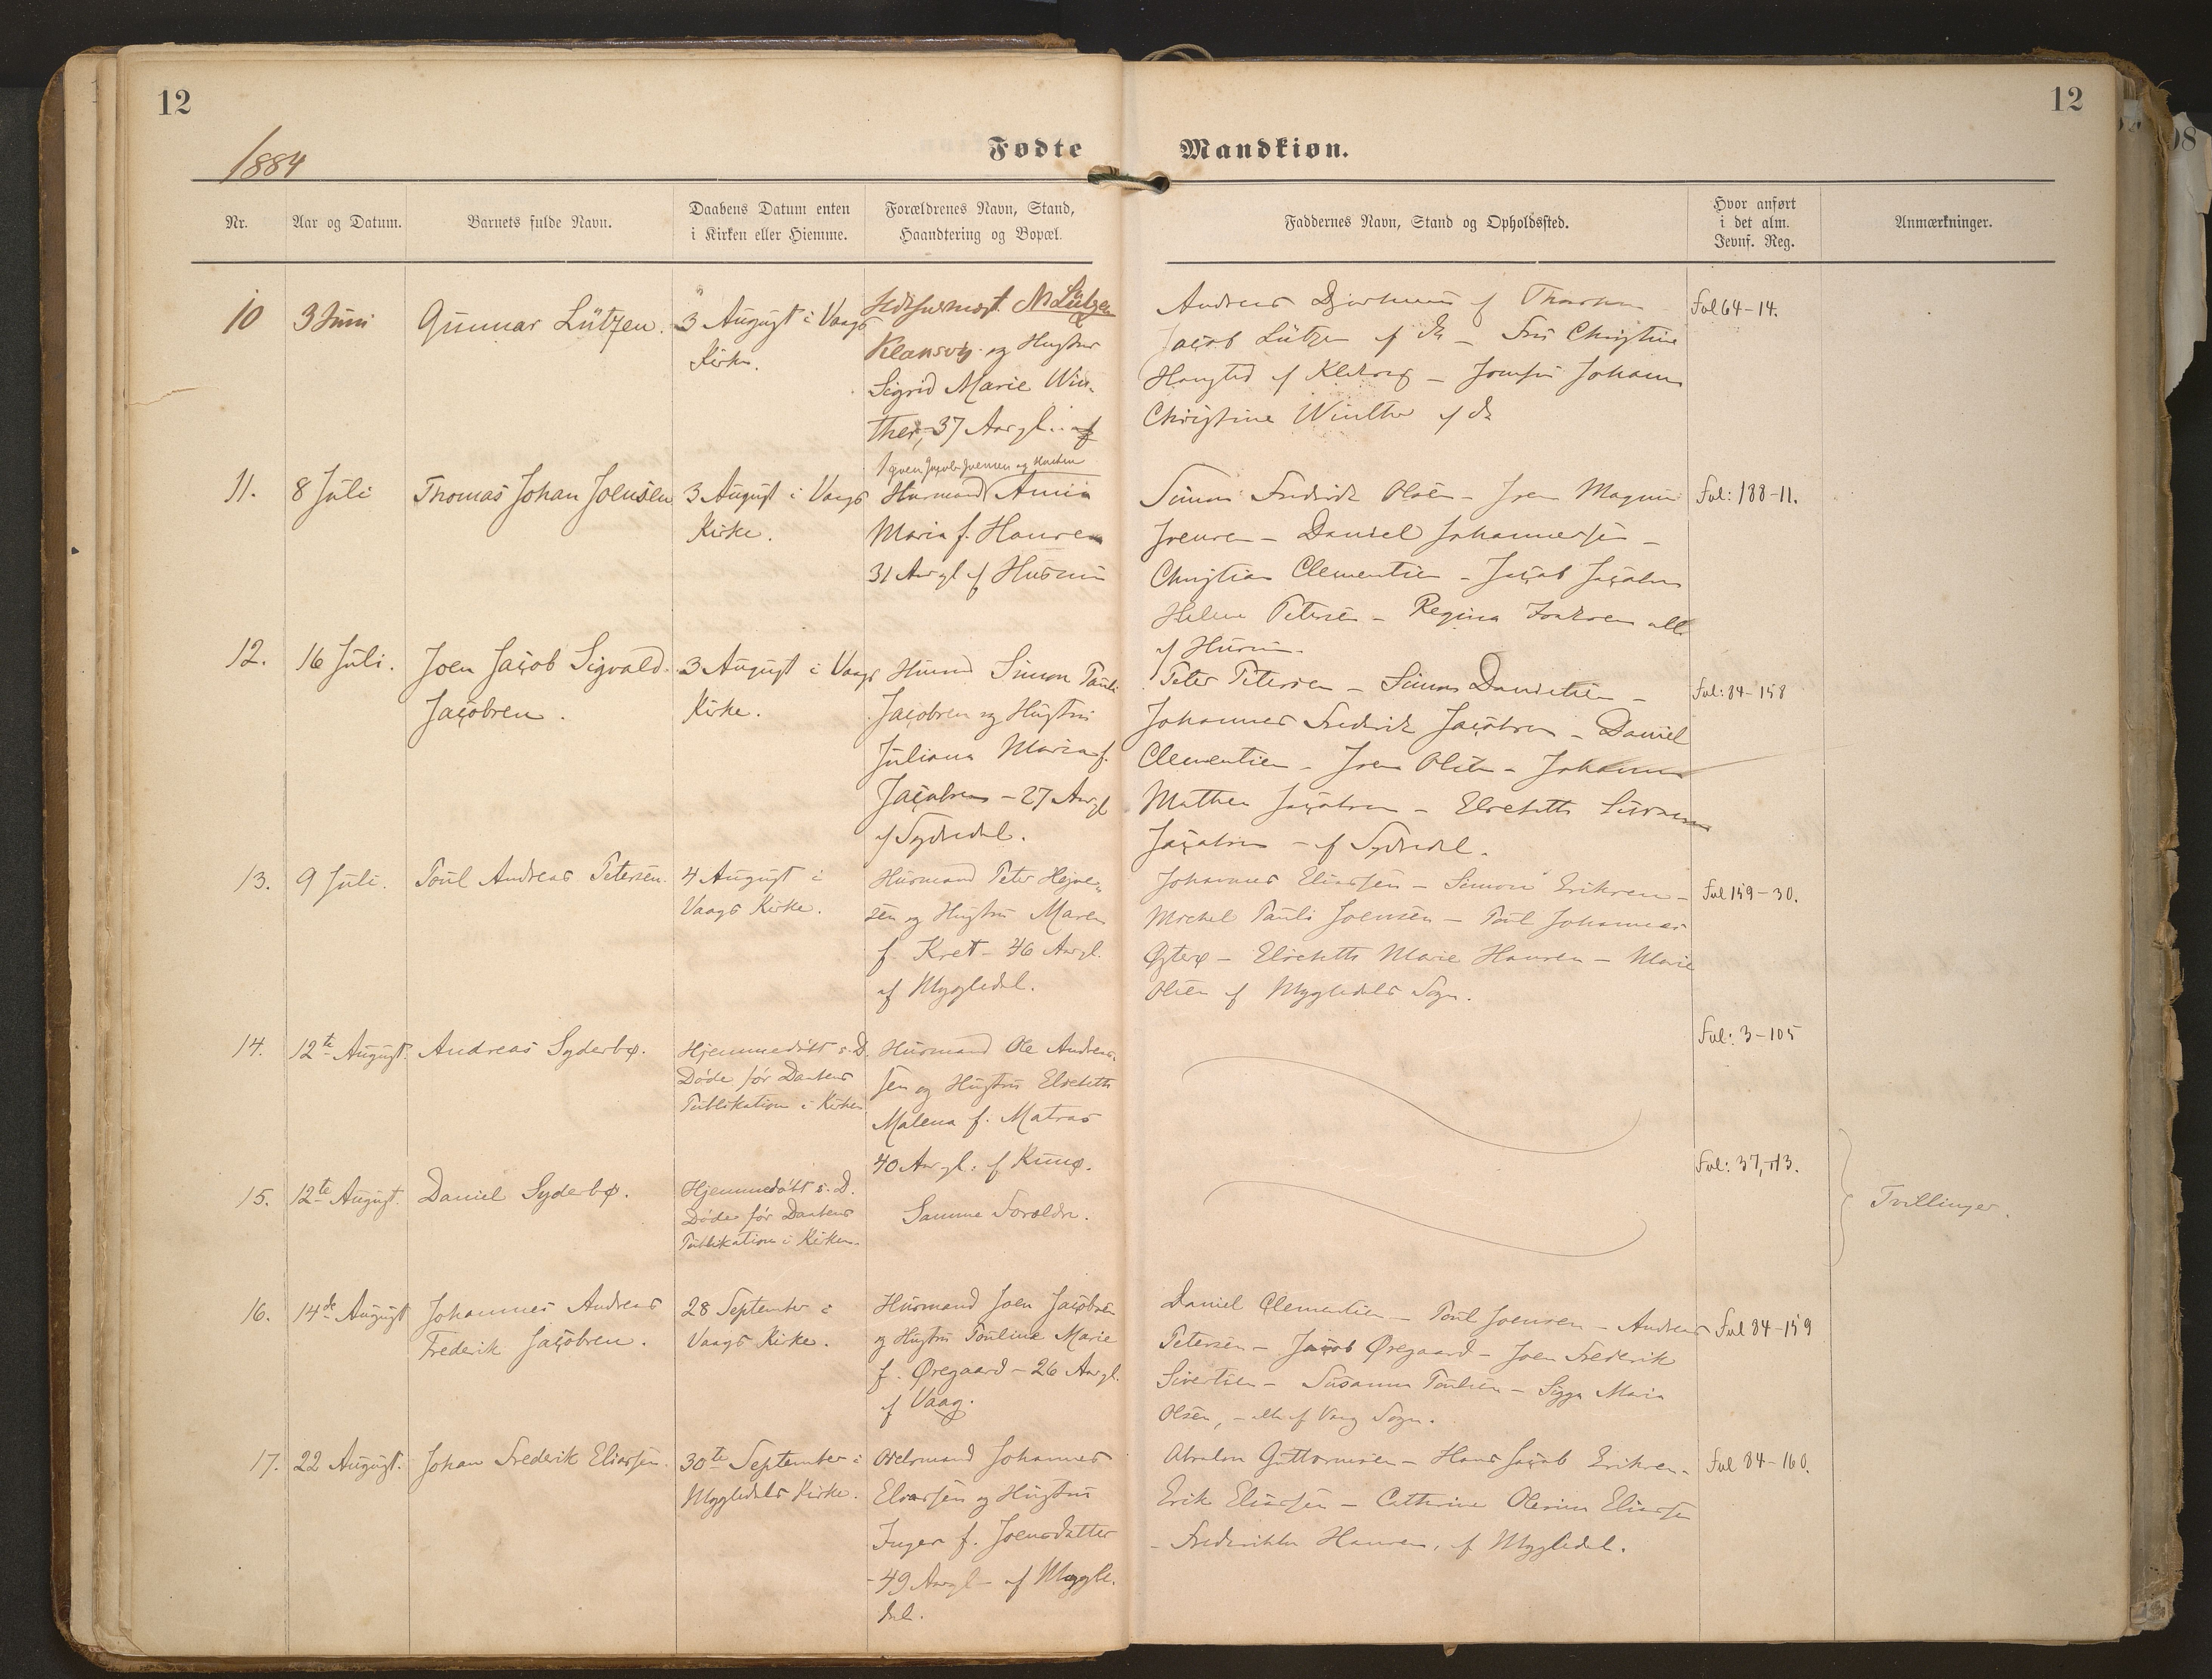 12
12
1884
Fødte
Mandkiøn.
Nr.
Aar og Datum.
Barnets fulde Navn.
Daabens Datum enten
i Kirken eller Hiemme.
Forældrenes Navn, Stand,
Haandtering og Bopæl.
Faddernes Navn, Stand og Opholdssted.
Hvor anført
i det alm.
Jevnf. Reg.
Anmærkninger.
10
3 Juni
Gunnar Lützen.
3 August i Vaags
Kirke.
N Lützen
og Hustru
Sigrid Marie Win-
ther, 37 Aar gl. af
Andreas af
Jacob Lützen af do – Christine
af – Johanne
Christine Winther af do
Fol 64–14.
11.
8 Juli
Thomas Johan Joensen
3 August i Vaags
Kirke.
Jacob Joensen og Hustru
Husmand Anna
Maria f. Hansen
31 Aar gl af
Simon Frederik Olsen – Magnus
Joensen – Daniel Johannessen –
Christian Clementsen – Jacob Jacobsen
Helene Petersen – Regina alle
af
Fol: 188–11.
12.
16 Juli.
Joen Jacob Sigvald
Jacobsen.
3 August i Vaags
Kirke.
Husmd Simon Pauli
Jacobsen og Hustru
Juliana Maria f.
Jacobsen – 27 Aar gl
af
Peter Petersen – Simon Danielsen –
Johannes Frederik Jacobsen – Daniel
Clementsen – Joen Olsen – Johanne
Jacobsen – Elsebeth
Jacobsen – af
Fol: 84–158
13.
9 Juli.
Poul Andreas Petersen.
4 August i
Vaags Kirke.
Husmand Peter
sen og Hustru Maren
f. Kret – 46 Aar gl.
af Myggledal.
Johannes Eliassen – Simon Eriksen –
Michel Pauli Joensen – Poul Johannes
– Elsebeth Marie Hansen – Marie
Olsen af Myggledals Sogn.
Fol 159–30.
14.
12te August.
Andreas Syderbø.
Hjemmedøbt s. D.
Døde før Daabens
Publikation i Kirken
Husmand Ole Andreas-
sen og Hustru Elsebeth
Malena f. Matras
40 Aar gl. af
Fol: 3–105
15.
12te August.
Daniel Syderbø.
Hjemmedøbt s. D.
Døde før Daabens
Publikation i Kirken.
Samme Forældre.
Fol: 37,–113.
Tvillinger.
16.
14de August
Johannes Andreas
Frederik Jacobsen.
28 September i
Vaags Kirke.
Husmand Joen Jacobsen
og Hustru Pouline Marie
f. Øregaard – 26 Aar gl.
af Vaag.
Daniel Clementsen – Poul Joensen – Andreas
Petersen – Jacob Øregaard – Joen Frederik
Sivertsen – Susanne Poulsen – Sigga Maria
Olsen, – alle af Vaag Sogn.
Fol 84–159
17.
22 August.
Johan Frederik Eliassen.
30te September i
Myggledals Kirke.
Odelsmand Johannes
Eliassen og Hustru
Inger f. Joensdatter
– 49 Aar gl – af Myggle-
dal.
Absalon Guttormsen – Hans Jacob Eriksen –
Erik Eliassen – Cathrine Eliassen
– Frederikke Hansen, af Myggledal.
Fol 84–160.